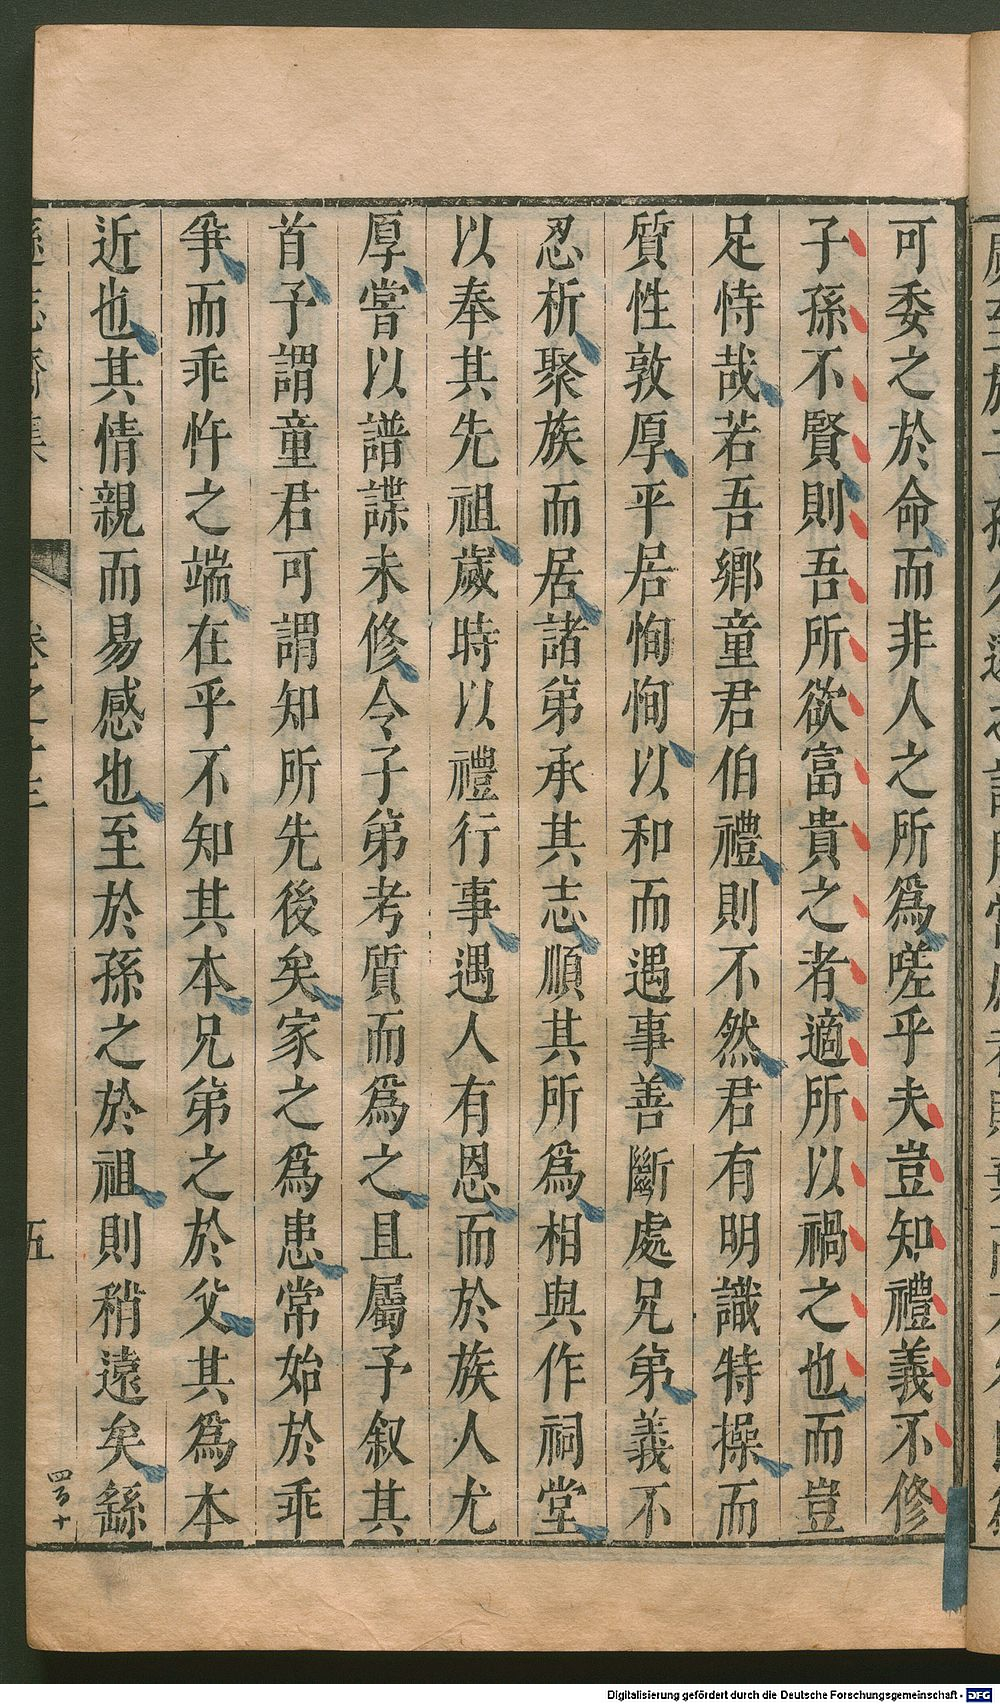 可委之於命而非人之所爲嗟乎夫豈知禮義不修
子孫不賢則吾所欲富貴之者適所以禍之也而豈
足恃哉若吾鄉童君伯禮則不然君有明識特操而
質性敦厚平居恂恂以和而遇事善斷處兄第義不
忍析聚族而居諸第承其志順其所爲相與作祠堂
以奉其先祖歲時以禮行事遇人有恩而於族人尤
厚嘗以譜諜未修令子第考質而爲之且屬予叙其
首予謂童君可謂知所先後矣家之爲患常始於乖
爭而乖忤之端在乎不知其本兄第之於父其爲本
近也其情親而易感也至於孫之於祖則稍遠矣繇
遜志齋集
卷之十三
五
四百十
Digitalisierung gefördert durch die Deutsche Forschungsgemeinschaft - DFG